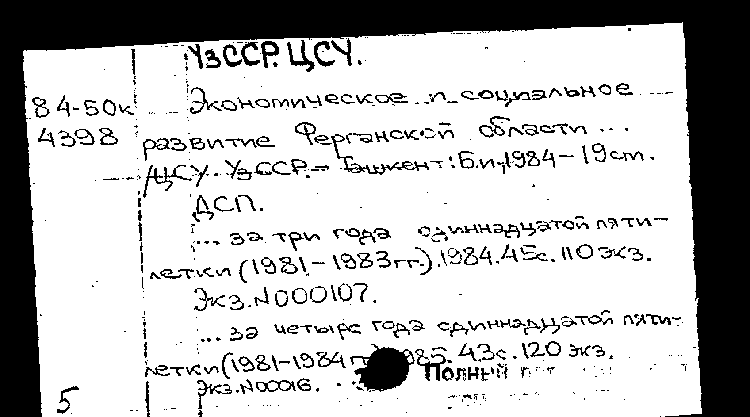 УзССР. ЦСУ.
84-50к Экономическое и социальное
4398 развитие Ферганской области ...
ЦСУ. УзССР. - Ташкент: Б.и., 1984 - 19 см.
ДСП.
... за три года одиннадцатой пяти-
летки (1981-1983 гг.). 1984. 45 с. 110 экз.
Экз. N000107.
... за четыре года одиннадцатой пяти-
летки (1981-1984 гг 985. 43 с. 120 экз.
Экз. N00016. Полный
5